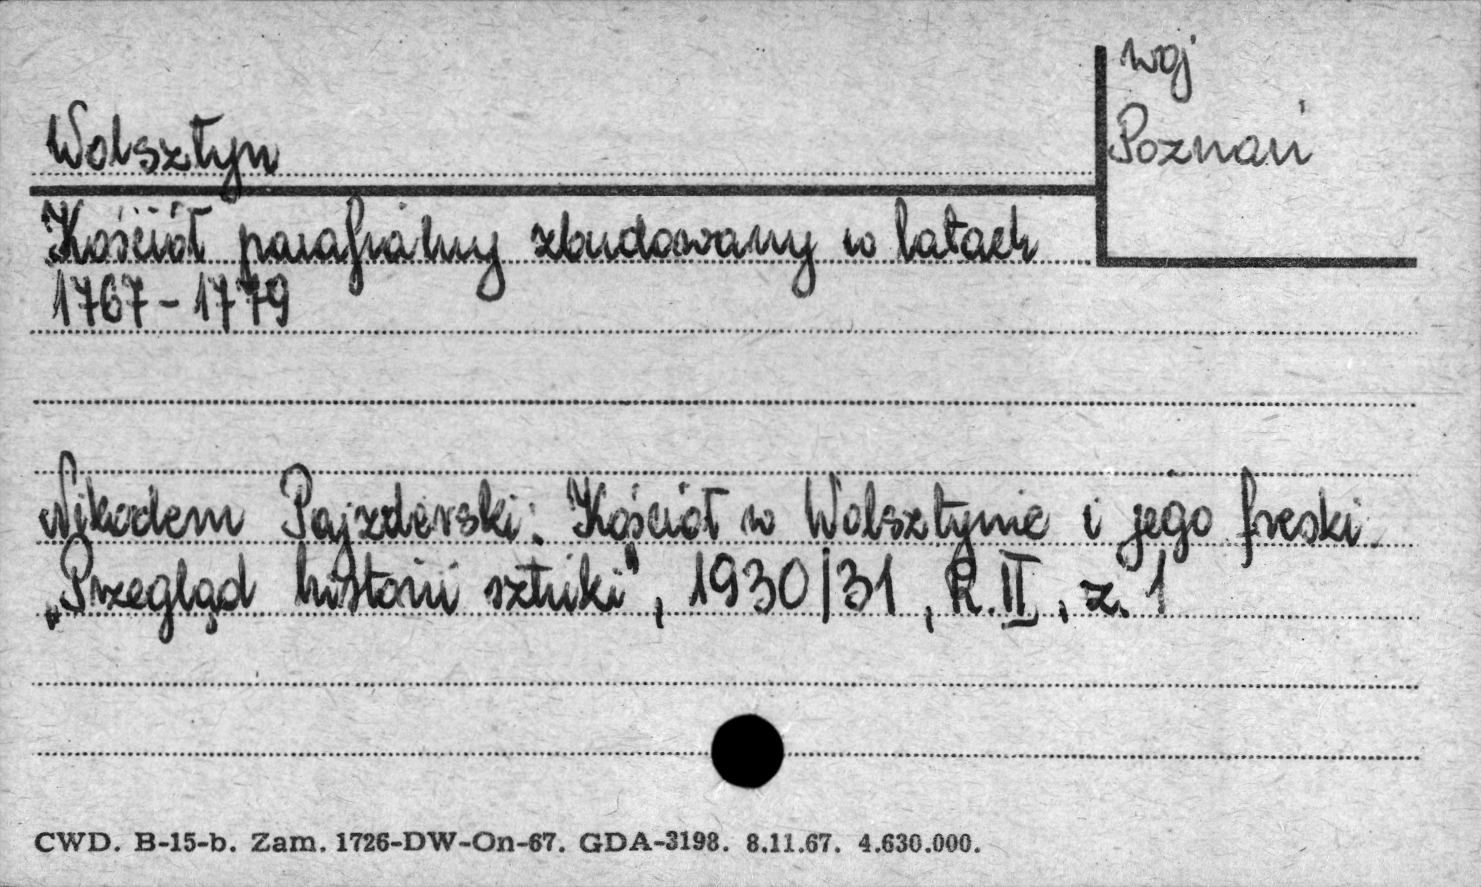 woj
Poznań
Wolsztyn
Kościół parafialny zbudowany w latach
1767-1779
Nikodem Pajzderski: Kościół w Wolsztynie i jego freski.
„Przegląd historii sztuki", 1930/31, R.II, z. 1
CWD. B-15-b. Zam. 1726-DW-On-67. GDA-3198. 8.11.67. 4.630.000.